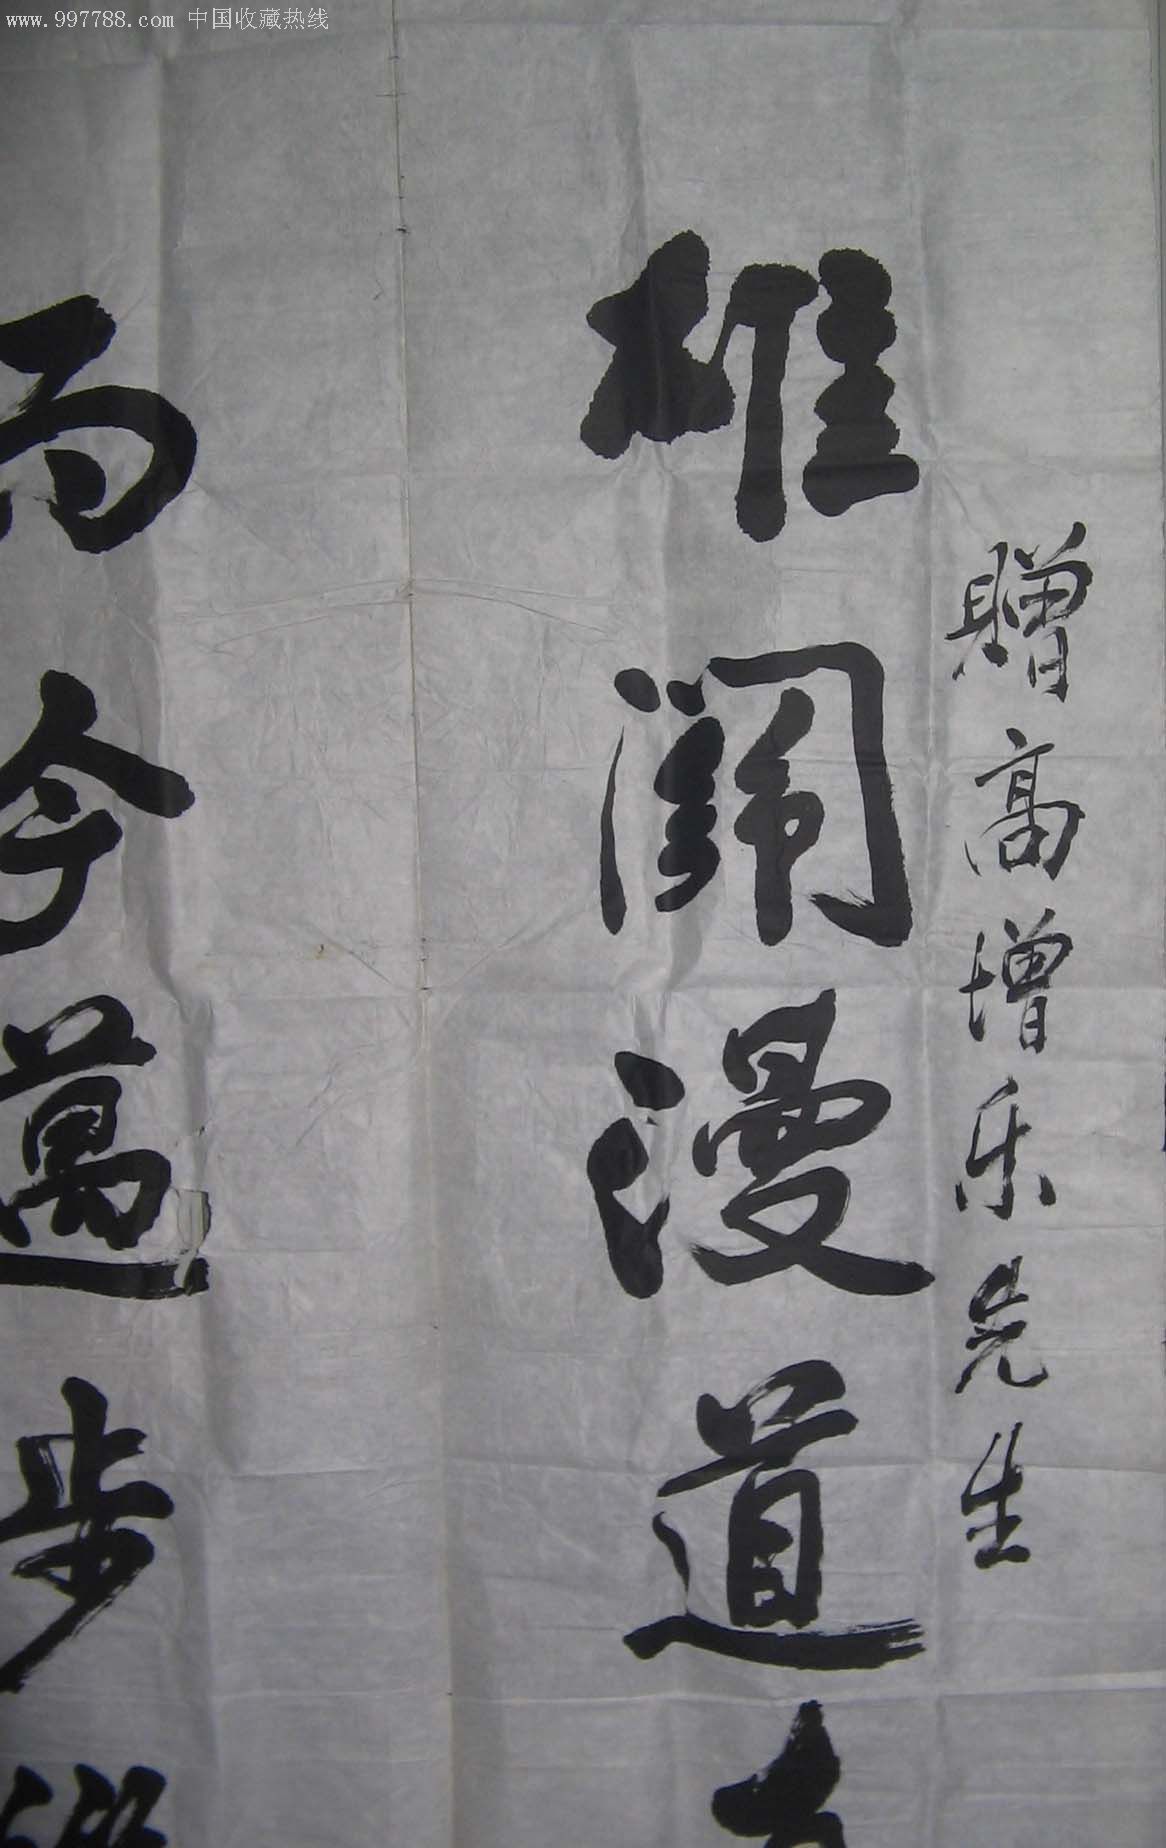 www.997788.com 中国收藏热线
贈高增乐先生
雄關漫道
而今邁步